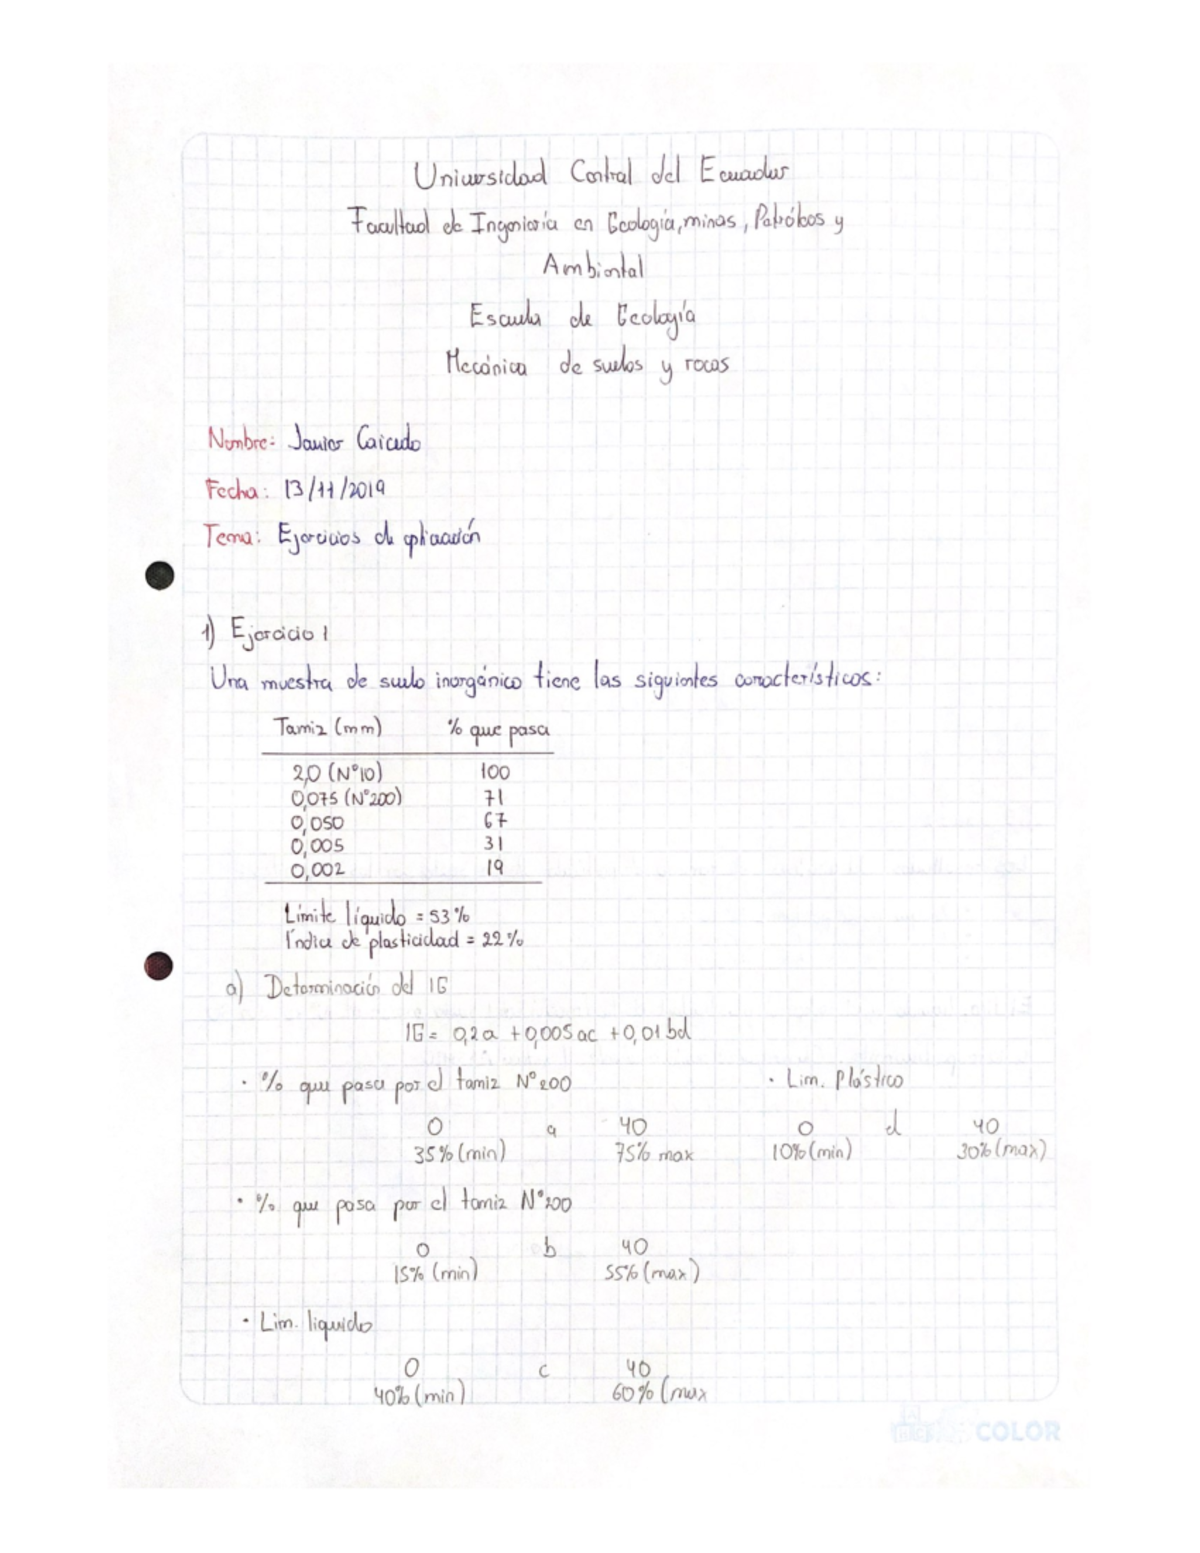 Universidad Central del Ecuador
Facultad de Ingeniería en Geología, minas, Petróleos y
Ambiental
Escuela de Geología
Mecánica de suelos y rocas
Nombre: Javier Caicedo
Fecha: 13/11/2019
Tema: Ejercicios de aplicación
1) Ejercicio 1
Una muestra de suelo inorgánico tiene las siguientes características:
Tamiz (mm) % que pasa
2,0 (N°10) 100
0,075 (N°200) 71
0,050 67
0,005 31
0,002 19
Límite líquido = 53%
Índice de plasticidad = 22%
a) Determinación del IG
IG = 0,2a + 0,005 ac + 0,01 bd
• % que pasa por el tamiz N°200 • Lim. Plástico
0 a 40 0 d 40
35% (min) 75% max 10% (min) 30% (max)
• % que pasa por el tamiz N°200
0 b 40
15% (min) 55% (max)
• Lim. liquido
0 c 40
40% (min) 60% (max
COLOR